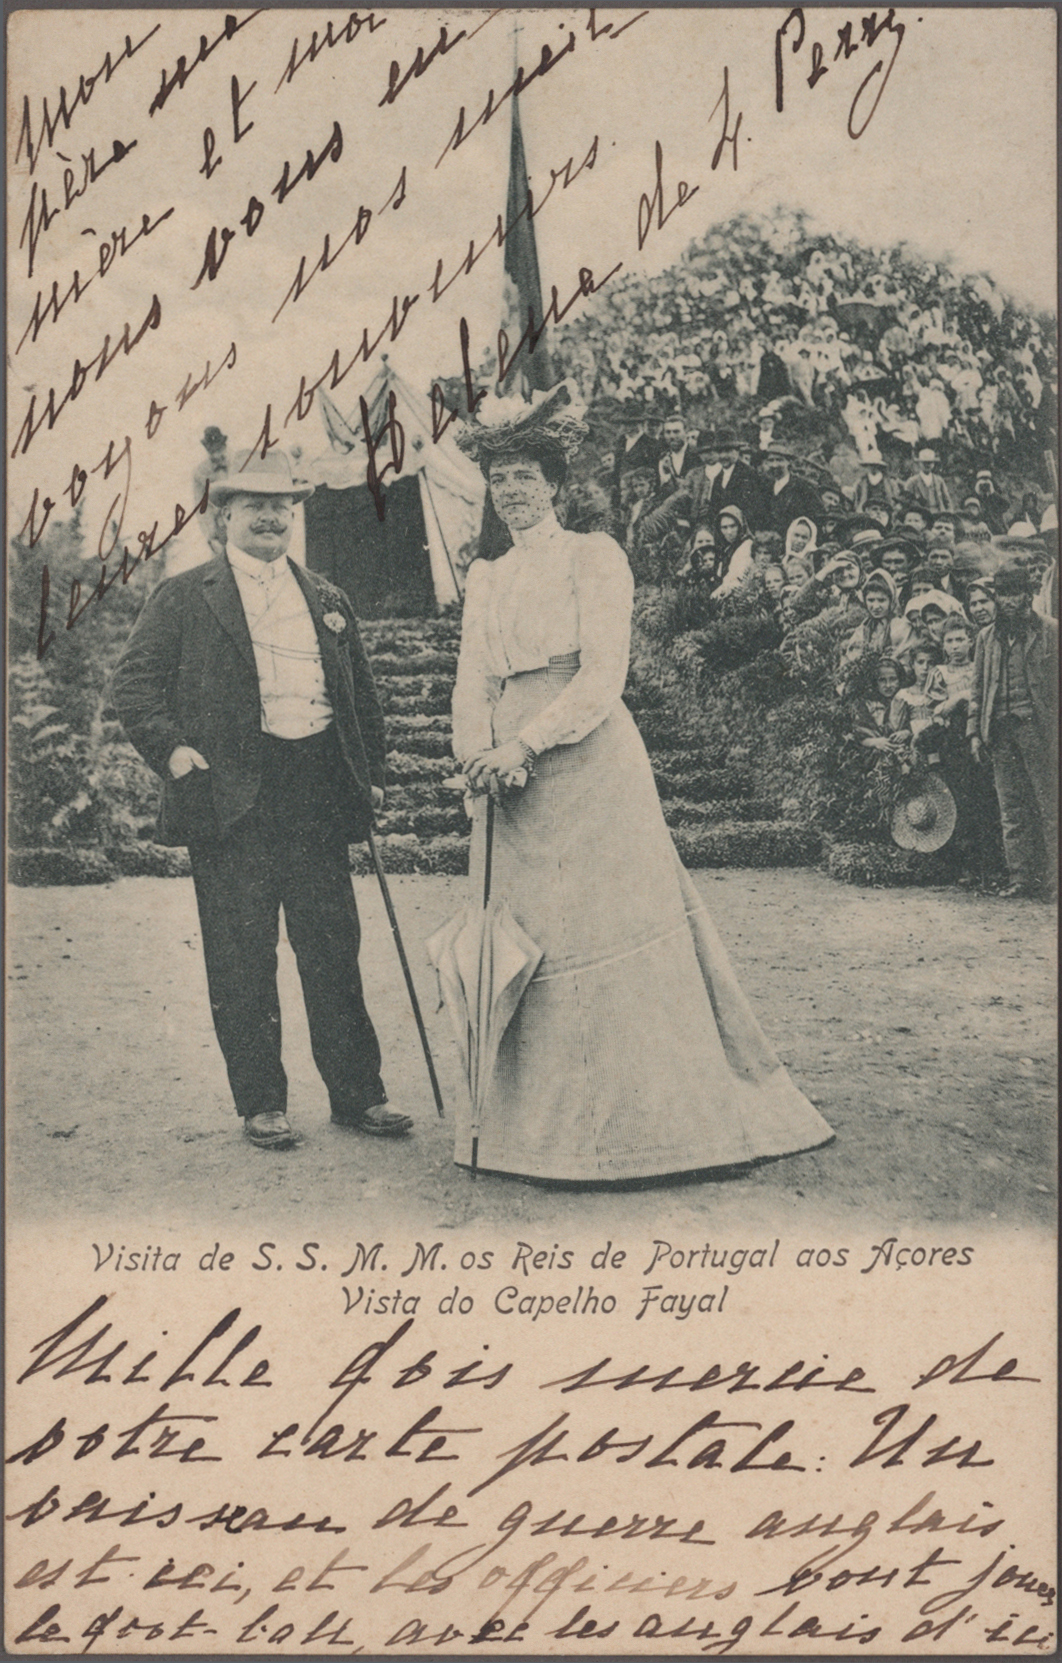 Mon
père ma
mère et moi
nous vous en
voyons nos meil
leures souvenirs.
Helena de L. Perry.
Visita de S. S. M. M. os Reis de Portugal aos Açores
Vista do Capelho Fayal
Mille fois mercie de
votre carte postale: Un
vaisseau de guerre anglais
est ici, et les officiers vont jouer
le foot-ball, avec les anglais d'ici